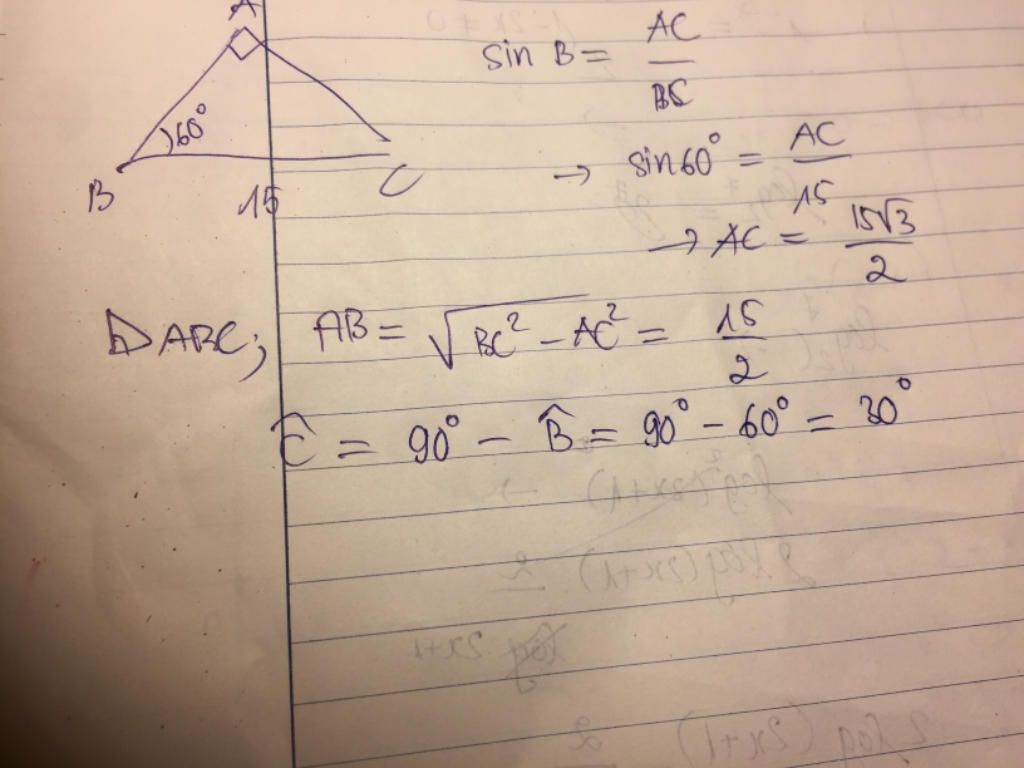 A
60°
B
15
C
sin B = AC / BC
→ sin60° = AC / 15
→ AC = 15√3 / 2
ΔABC; AB = √BC² - AC² = 15 / 2
Ĉ = 90° - B̂ = 90° - 60° = 30°